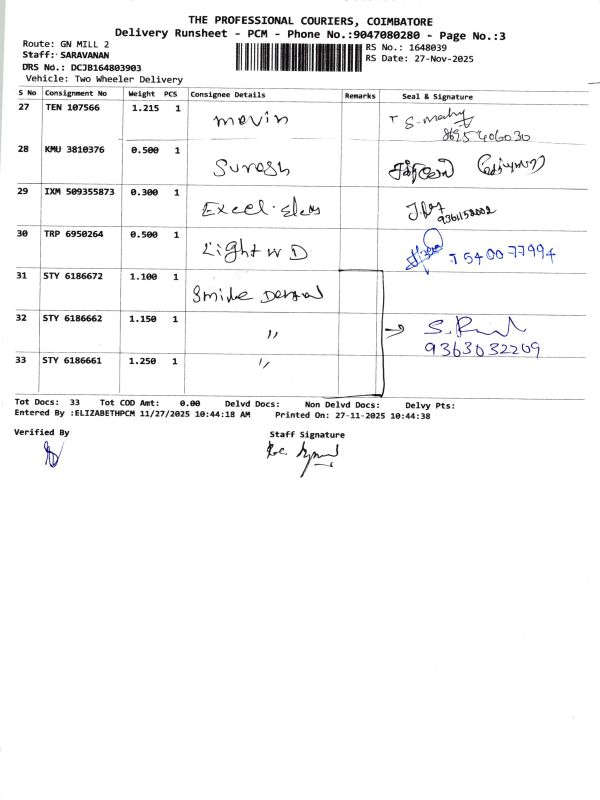 THE PROFESSIONAL COURIERS, COIMBATORE
Delivery Runsheet - PCM - Phone No.:9047080280 - Page No.:3
Route: GN MILL 2
Staff: SARAVANAN
DRS No.: DCJB164803903
Vehicle: Two Wheeler Delivery
RS No.: 1648039
RS Date: 27-Nov-2025
S No Consignment No Weight PCS Consignee Details Remarks Seal & Signature
27 TEN 107566 1.215 1 movin
8695406030
28 KMU 3810376 0.500 1 Suresh
29 IXM 509355873 0.300 1 Excel
30 TRP 6950264 0.500 1 Light W D
31 STY 6186672 1.100 1 Smile Dental
32 STY 6186662 1.150 1 "
9363032209
33 STY 6186661 1.250 1 "
Tot Docs: 33 Tot COD Amt: 0.00 Delvd Docs: Non Delvd Docs: Delvy Pts:
Entered By :ELIZABETHPCM 11/27/2025 10:44:18 AM Printed On: 27-11-2025 10:44:38
Verified By Staff Signature